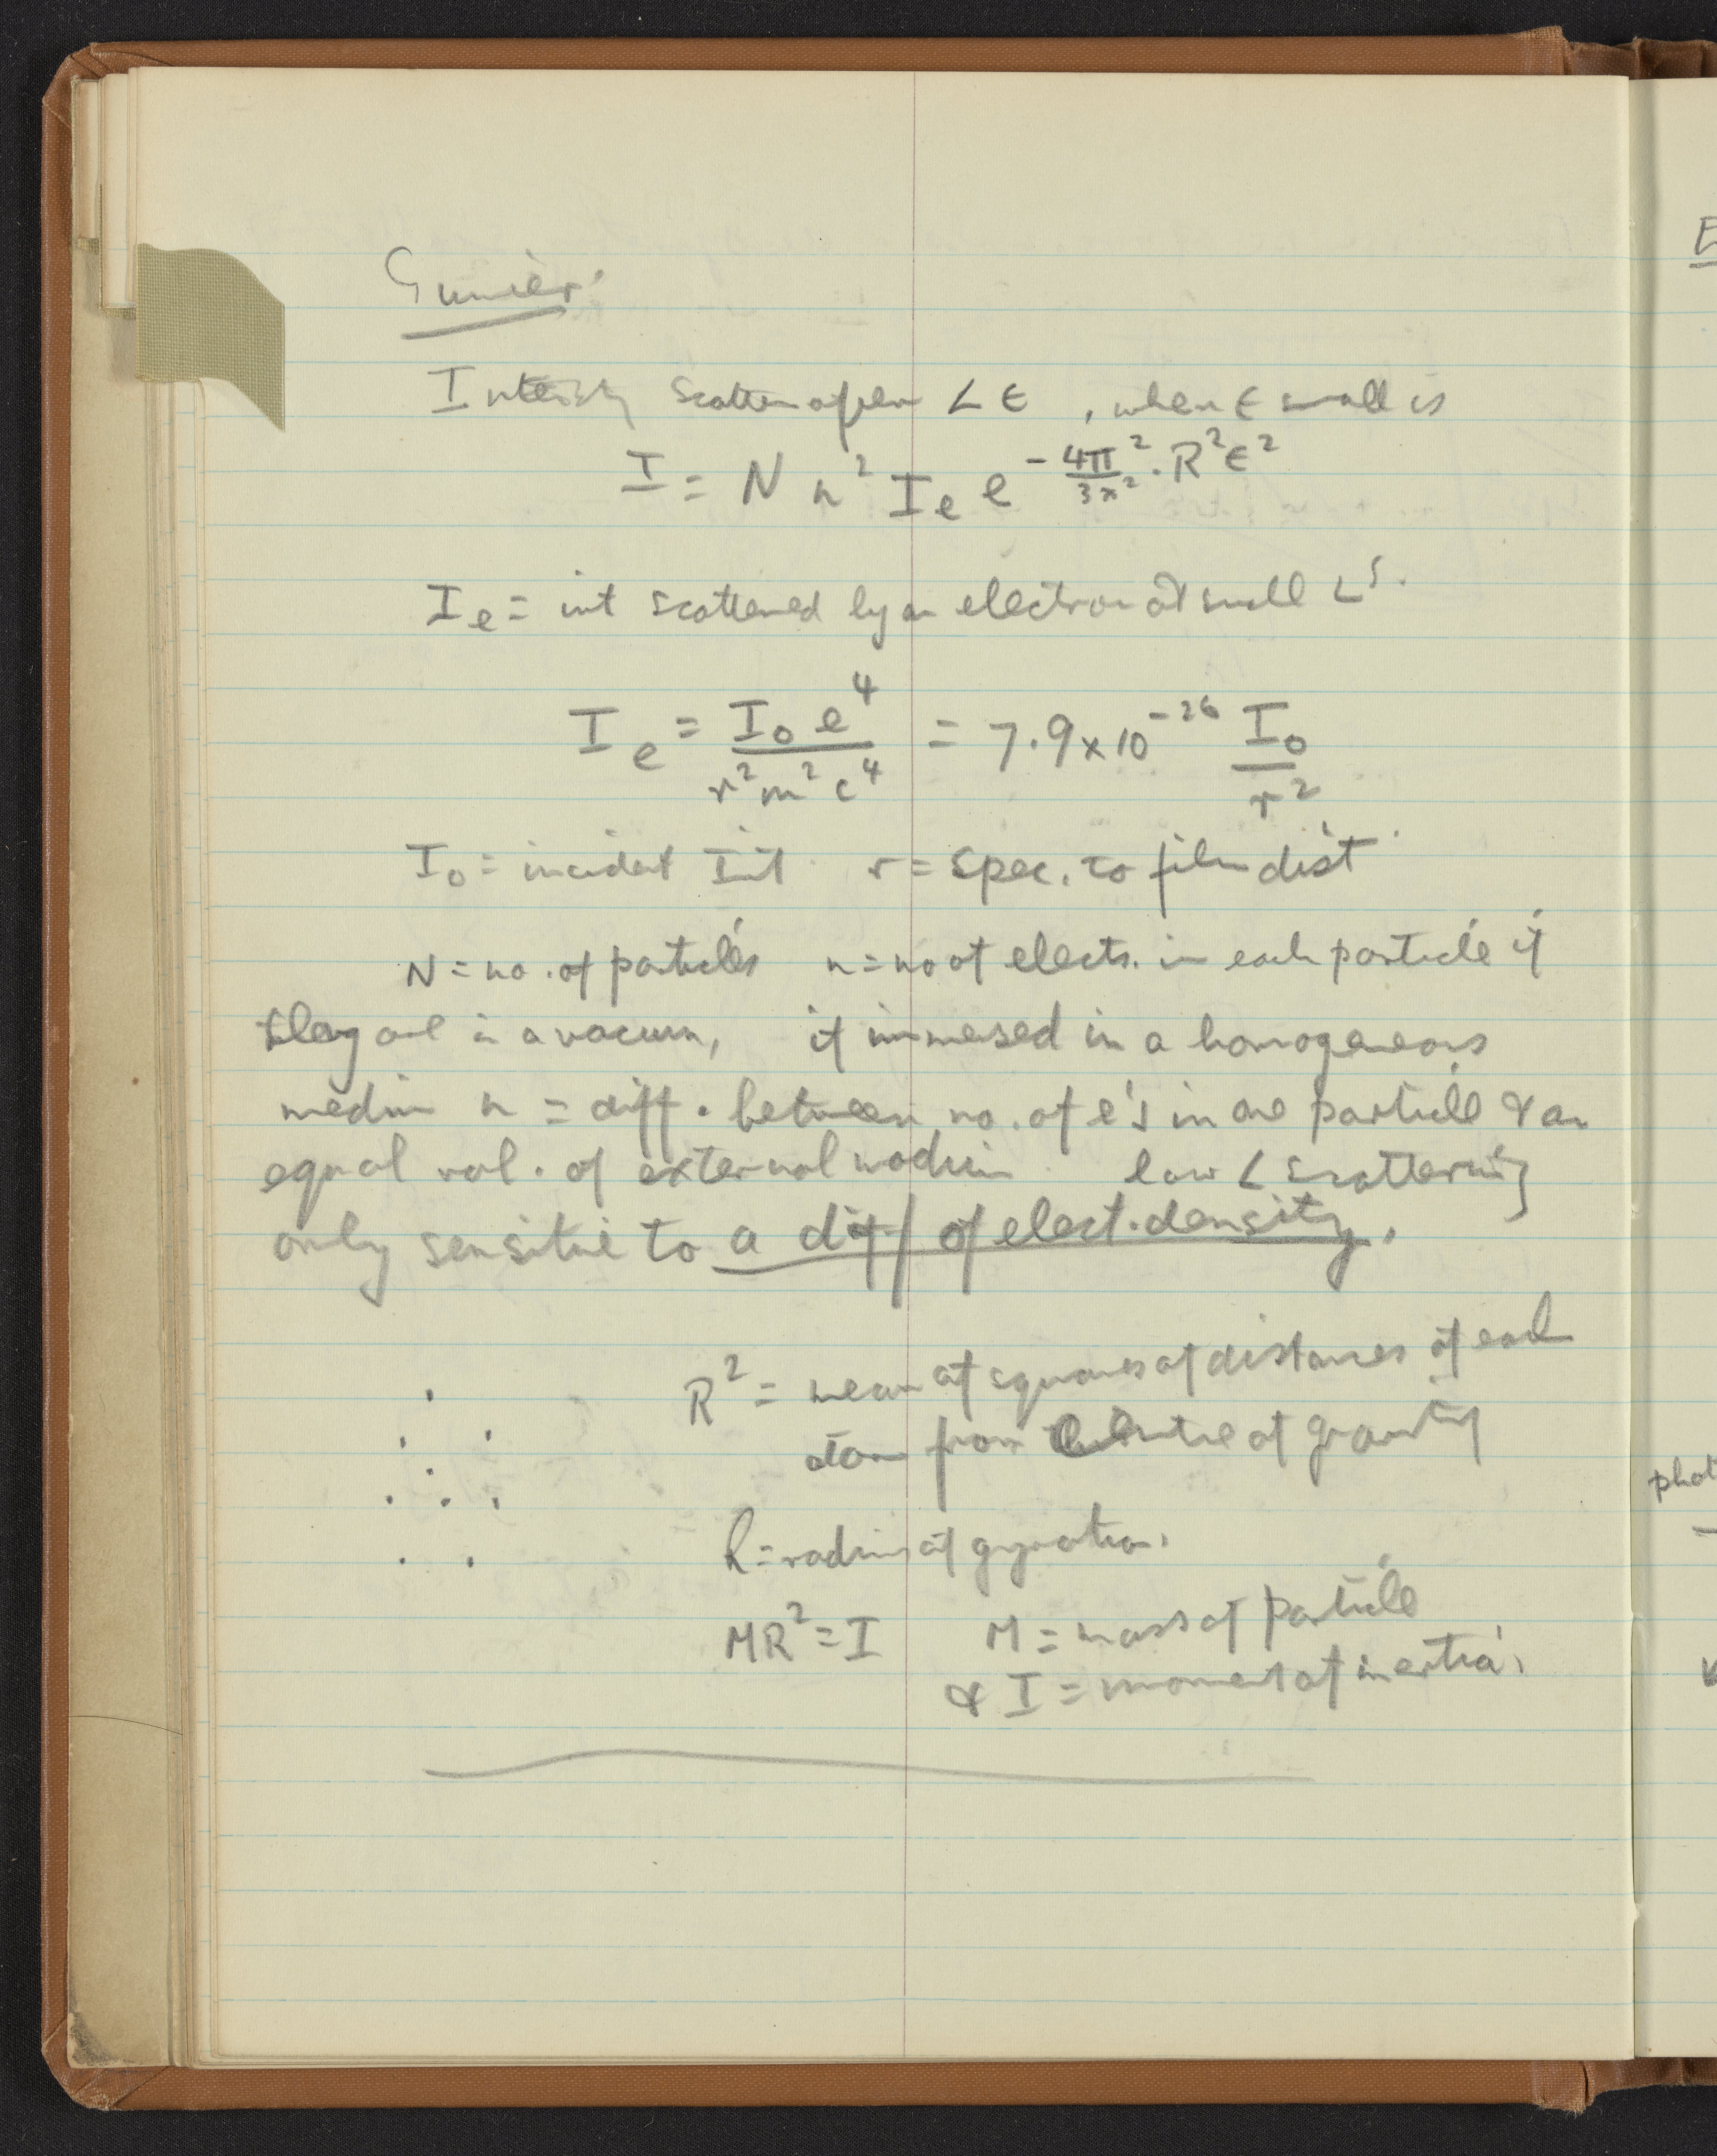 Gunier.
Intensity scatter after ∠ ϵ, when ϵ small is
I = N n² I_e e^(-4π²/3λ² · R²ϵ²)
I_e = int scattered by an electron at small ∠s.
I_e = I₀ e⁴ / r²m²c⁴ = 7.9 × 10⁻²⁶ I₀ / r²
I₀ = incident Int. r = spec. to film dist.
N = no. of particles n = no of elects. in each particle if
they are in a vacuum, if immersed in a homogeneous
medium n = diff. between no. of e's in one particle & an
equal vol. of external medium low ∠ scattering
only sensitive to a diff of elect. density.
R² = mean of squares of distances of each
atom from centre of gravity
R = radius of gyration.
MR² = I M = mass of particle
& I = moment of inertia.
E
phot